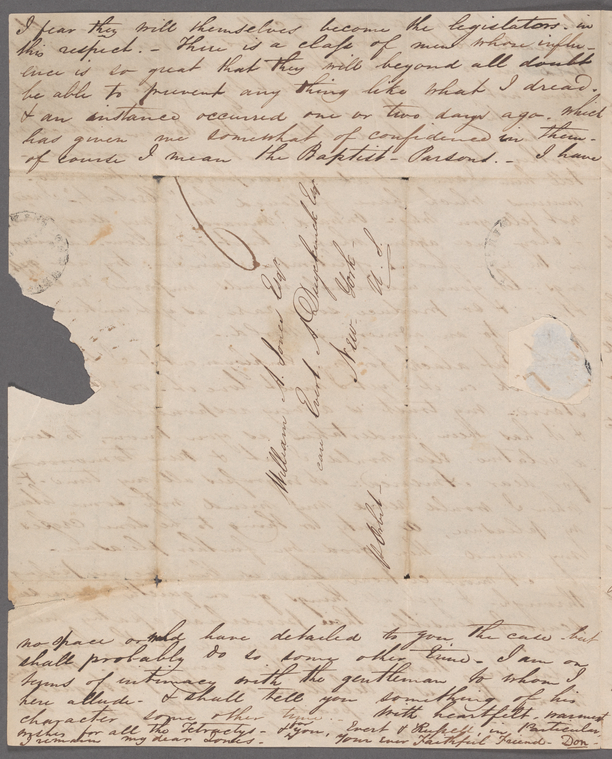 I fear they will themselves become the legislators in
this respect. - There is a class of men whose influ-
ence is so great that they will beyond all doubt
be able to prevent any thing like what I dread.
& an instance occurred one or two days ago. which
has given me somewhat of confidence in them-
of course I mean the Baptist - Parsons. - I have
William A. Jones Esqr
care Evert A Duyckinck Esq
New York
U S
P Orbit
no space or would have detailed to you the case but
shall probably do so some other time - I am on
terms of intimacy with the gentleman to whom I
here allude - & shall tell you something of his
character some other time - With heartfelt, warmest
wishes for all the Tetractys - & you, Evert & Russell, in Particular
I remain my dear Jones - Your ever Faithful Friend - Don -